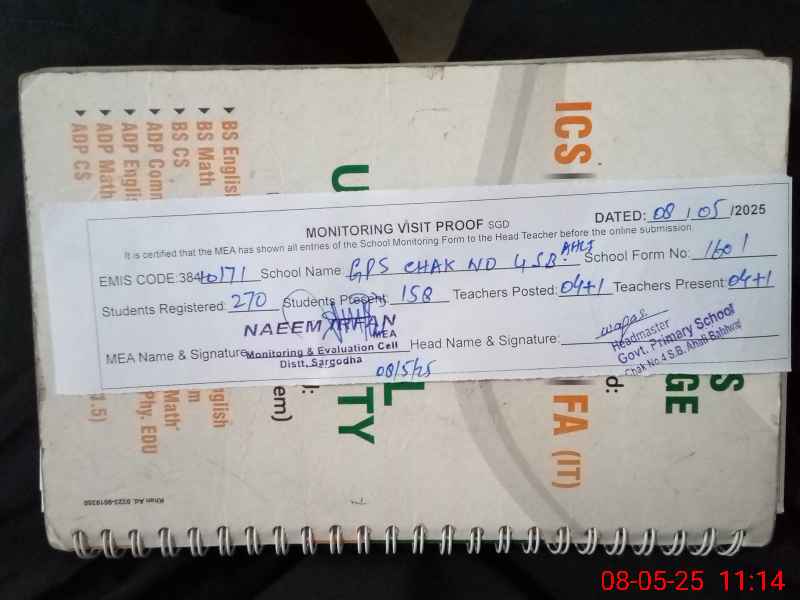 MONITORING VISIT PROOF SGD
DATED: 08 / 05 /2025
It is certified that the MEA has shown all entries of the School Monitoring Form to the Head Teacher before the online submission.
EMIS CODE:38410171 School Name GPS CHAK NO 4SB. AHLI School Form No: 1601
Students Registered: 270 Students Present: 158 Teachers Posted: 04+1 Teachers Present: 04+1
MEA Name & Signature
NAEEM
MEA
Monitoring & Evaluation Cell
Distt, Sargodha
08/5/25
Head Name & Signature:
Headmaster
Govt. Primary School
Chak No.4 S.B.
BS English
BS Math
BS CS
ADP Comm
ADP Englis
ADP Math
ADP CS
U
ICS
FA (IT)
TY
L
S
GE
d:
em)
nglish
m
Math
Phy. EDU
1.5)
Khan Ad. 0323-9619350
08-05-25 11:14